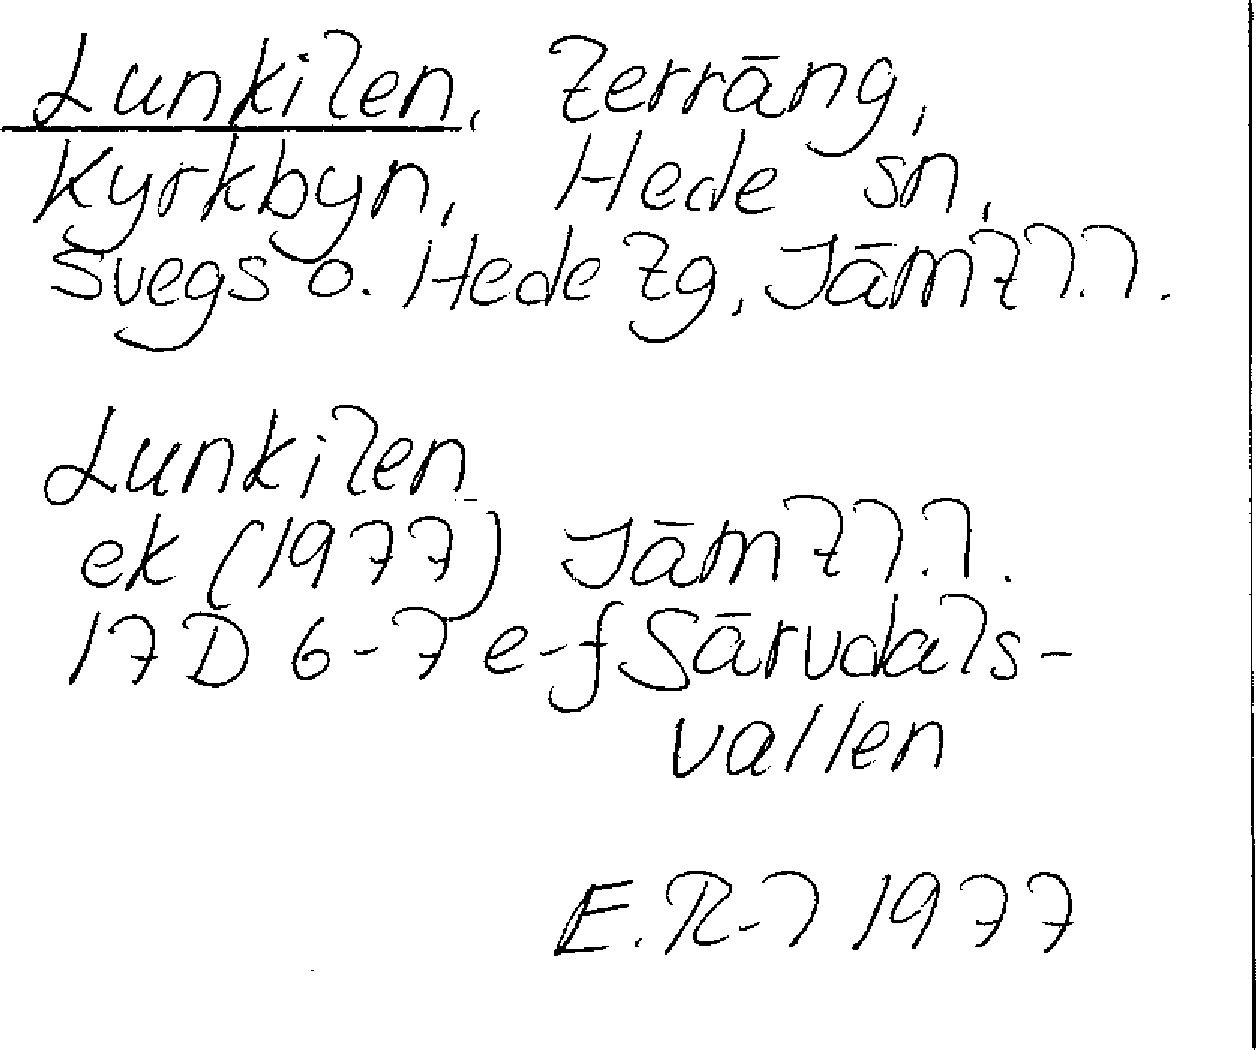 Lunkilen, terräng,
Kyrkbyn, Hede sn,
Svegs o. Hede tg, Jämtl.l.
Lunkilen
ek (1977) Jämtl.l.
17 D 6-7 e-f Särvdals-
vallen
E.R-l 1977